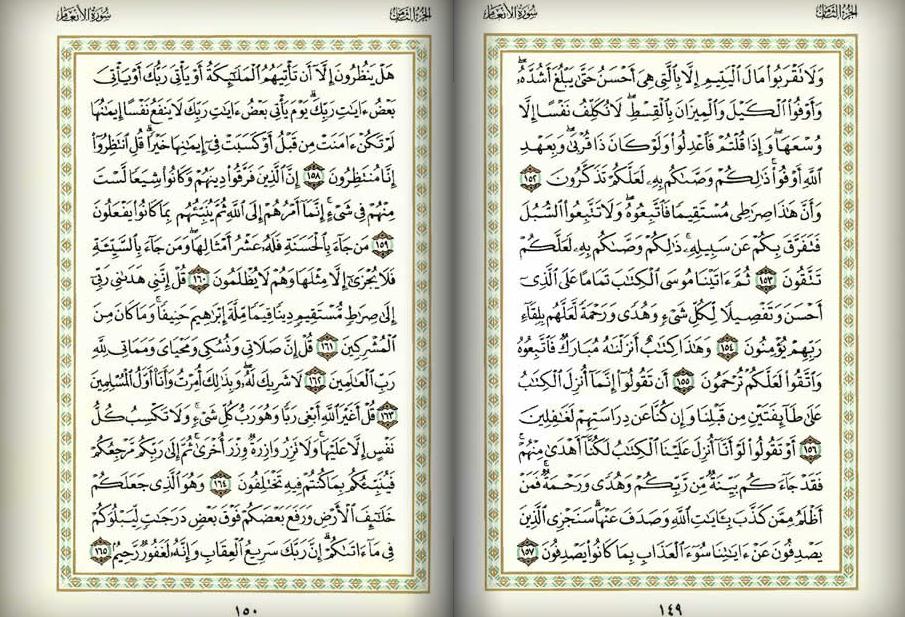 الجزء الثامن
سورة الأنعام
وَلَا تَقْرَبُوا۟ مَالَ ٱلْيَتِيمِ إِلَّا بِٱلَّتِى هِىَ أَحْسَنُ حَتَّىٰ يَبْلُغَ أَشُدَّهُۥ ۖ
وَأَوْفُوا۟ ٱلْكَيْلَ وَٱلْمِيزَانَ بِٱلْقِسْطِ ۖ لَا نُكَلِّفُ نَفْسًا إِلَّا
وُسْعَهَا ۖ وَإِذَا قُلْتُمْ فَٱعْدِلُوا۟ وَلَوْ كَانَ ذَا قُرْبَىٰ ۖ وَبِعَهْدِ
ٱللَّهِ أَوْفُوا۟ ۚ ذَٰلِكُمْ وَصَّىٰكُم بِهِۦ لَعَلَّكُمْ تَذَكَّرُونَ ١٥٢
وَأَنَّ هَٰذَا صِرَٰطِى مُسْتَقِيمًا فَٱتَّبِعُوهُ ۖ وَلَا تَتَّبِعُوا۟ ٱلسُّبُلَ
فَتَفَرَّقَ بِكُمْ عَن سَبِيلِهِۦ ۚ ذَٰلِكُمْ وَصَّىٰكُم بِهِۦ لَعَلَّكُمْ
تَتَّقُونَ ١٥٣ ثُمَّ ءَاتَيْنَا مُوسَى ٱلْكِتَٰبَ تَمَامًا عَلَى ٱلَّذِىٓ
أَحْسَنَ وَتَفْصِيلًا لِّكُلِّ شَىْءٍ وَهُدًى وَرَحْمَةً لَّعَلَّهُم بِلِقَآءِ
رَبِّهِمْ يُؤْمِنُونَ ١٥٤ وَهَٰذَا كِتَٰبٌ أَنزَلْنَٰهُ مُبَارَكٌ فَٱتَّبِعُوهُ
وَٱتَّقُوا۟ لَعَلَّكُمْ تُرْحَمُونَ ١٥٥ أَن تَقُولُوٓا۟ إِنَّمَآ أُنزِلَ ٱلْكِتَٰبُ
عَلَىٰ طَآئِفَتَيْنِ مِن قَبْلِنَا وَإِن كُنَّا عَن دِرَاسَتِهِمْ لَغَٰفِلِينَ
١٥٦ أَوْ تَقُولُوا۟ لَوْ أَنَّآ أُنزِلَ عَلَيْنَا ٱلْكِتَٰبُ لَكُنَّآ أَهْدَىٰ مِنْهُمْ ۚ
فَقَدْ جَآءَكُم بَيِّنَةٌ مِّن رَّبِّكُمْ وَهُدًى وَرَحْمَةٌ ۚ فَمَنْ
أَظْلَمُ مِمَّن كَذَّبَ بِـَٔايَٰتِ ٱللَّهِ وَصَدَفَ عَنْهَا ۗ سَنَجْزِى ٱلَّذِينَ
يَصْدِفُونَ عَنْ ءَايَٰتِنَا سُوٓءَ ٱلْعَذَابِ بِمَا كَانُوا۟ يَصْدِفُونَ ١٥٧
١٤٩
الجزء الثامن
سورة الأنعام
هَلْ يَنظُرُونَ إِلَّآ أَن تَأْتِيَهُمُ ٱلْمَلَٰٓئِكَةُ أَوْ يَأْتِىَ رَبُّكَ أَوْ يَأْتِىَ
بَعْضُ ءَايَٰتِ رَبِّكَ ۗ يَوْمَ يَأْتِى بَعْضُ ءَايَٰتِ رَبِّكَ لَا يَنفَعُ نَفْسًا إِيمَٰنُهَا
لَمْ تَكُنْ ءَامَنَتْ مِن قَبْلُ أَوْ كَسَبَتْ فِىٓ إِيمَٰنِهَا خَيْرًا ۗ قُلِ ٱنتَظِرُوٓا۟
إِنَّا مُنتَظِرُونَ ١٥٨ إِنَّ ٱلَّذِينَ فَرَّقُوا۟ دِينَهُمْ وَكَانُوا۟ شِيَعًا لَّسْتَ
مِنْهُمْ فِى شَىْءٍ ۚ إِنَّمَآ أَمْرُهُمْ إِلَى ٱللَّهِ ثُمَّ يُنَبِّئُهُم بِمَا كَانُوا۟ يَفْعَلُونَ
١٥٩ مَن جَآءَ بِٱلْحَسَنَةِ فَلَهُۥ عَشْرُ أَمْثَالِهَا ۖ وَمَن جَآءَ بِٱلسَّيِّئَةِ
فَلَا يُجْزَىٰٓ إِلَّا مِثْلَهَا وَهُمْ لَا يُظْلَمُونَ ١٦٠ قُلْ إِنَّنِى هَدَىٰنِى رَبِّىٓ
إِلَىٰ صِرَٰطٍ مُّسْتَقِيمٍ دِينًا قِيَمًا مِّلَّةَ إِبْرَٰهِيمَ حَنِيفًا ۚ وَمَا كَانَ مِنَ
ٱلْمُشْرِكِينَ ١٦١ قُلْ إِنَّ صَلَاتِى وَنُسُكِى وَمَحْيَاىَ وَمَمَاتِى لِلَّهِ
رَبِّ ٱلْعَٰلَمِينَ ١٦٢ لَا شَرِيكَ لَهُۥ ۖ وَبِذَٰلِكَ أُمِرْتُ وَأَنَا۠ أَوَّلُ ٱلْمُسْلِمِينَ
١٦٣ قُلْ أَغَيْرَ ٱللَّهِ أَبْغِى رَبًّا وَهُوَ رَبُّ كُلِّ شَىْءٍ ۚ وَلَا تَكْسِبُ كُلُّ
نَفْسٍ إِلَّا عَلَيْهَا ۚ وَلَا تَزِرُ وَازِرَةٌ وِزْرَ أُخْرَىٰ ۚ ثُمَّ إِلَىٰ رَبِّكُم مَّرْجِعُكُمْ
فَيُنَبِّئُكُم بِمَا كُنتُمْ فِيهِ تَخْتَلِفُونَ ١٦٤ وَهُوَ ٱلَّذِى جَعَلَكُمْ
خَلَٰٓئِفَ ٱلْأَرْضِ وَرَفَعَ بَعْضَكُمْ فَوْقَ بَعْضٍ دَرَجَٰتٍ لِّيَبْلُوَكُمْ
فِى مَآ ءَاتَىٰكُمْ ۗ إِنَّ رَبَّكَ سَرِيعُ ٱلْعِقَابِ وَإِنَّهُۥ لَغَفُورٌ رَّحِيمٌ ١٦٥
١٥٠